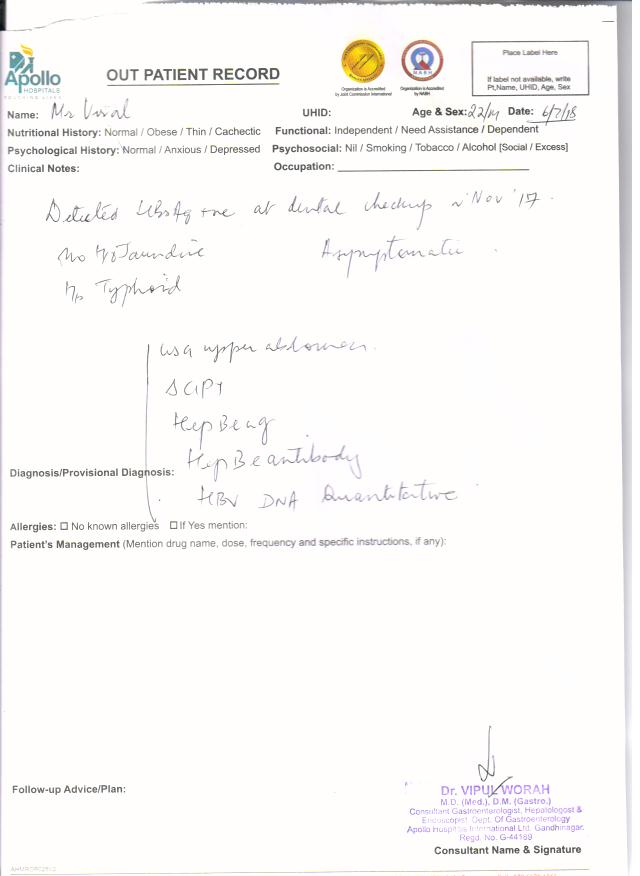 Apollo
HOSPITALS
TOUCHING LIVES
OUT PATIENT RECORD
Organization is Accredited
by Joint Commission International
Organization is Accredited
by NABH
Place Label Here
If label not available, write
Pt.Name, UHID, Age, Sex
Name: Mr UHID: Age & Sex: 22/M Date: 6/7/18
Nutritional History: Normal / Obese / Thin / Cachectic Functional: Independent / Need Assistance / Dependent
Psychological History: Normal / Anxious / Depressed Psychosocial: Nil / Smoking / Tobacco / Alcohol [Social / Excess]
Clinical Notes: Occupation:
Detected HBsAg +ve at dental checkup Nov '17.
No H/o Jaundice Asymptomatic.
H/o Typhoid
USG upper abdomen.
SGPT
Hep Be ag
Hep Be antibody
Diagnosis/Provisional Diagnosis:
HBV DNA Quantitative
Allergies: ☐ No known allergies ☐ If Yes mention:
Patient's Management (Mention drug name, dose, frequency and specific instructions, if any):
Follow-up Advice/Plan:
Dr. VIPUL WORAH
M.D. (Med.), D.M. (Gastro.)
Consultant Gastroenterologist, Hepatologist &
Endoscopist, Dept. Of Gastroenterology
Apollo Hospitals International Ltd. Gandhinagar.
Regd. No. G-44169
Consultant Name & Signature